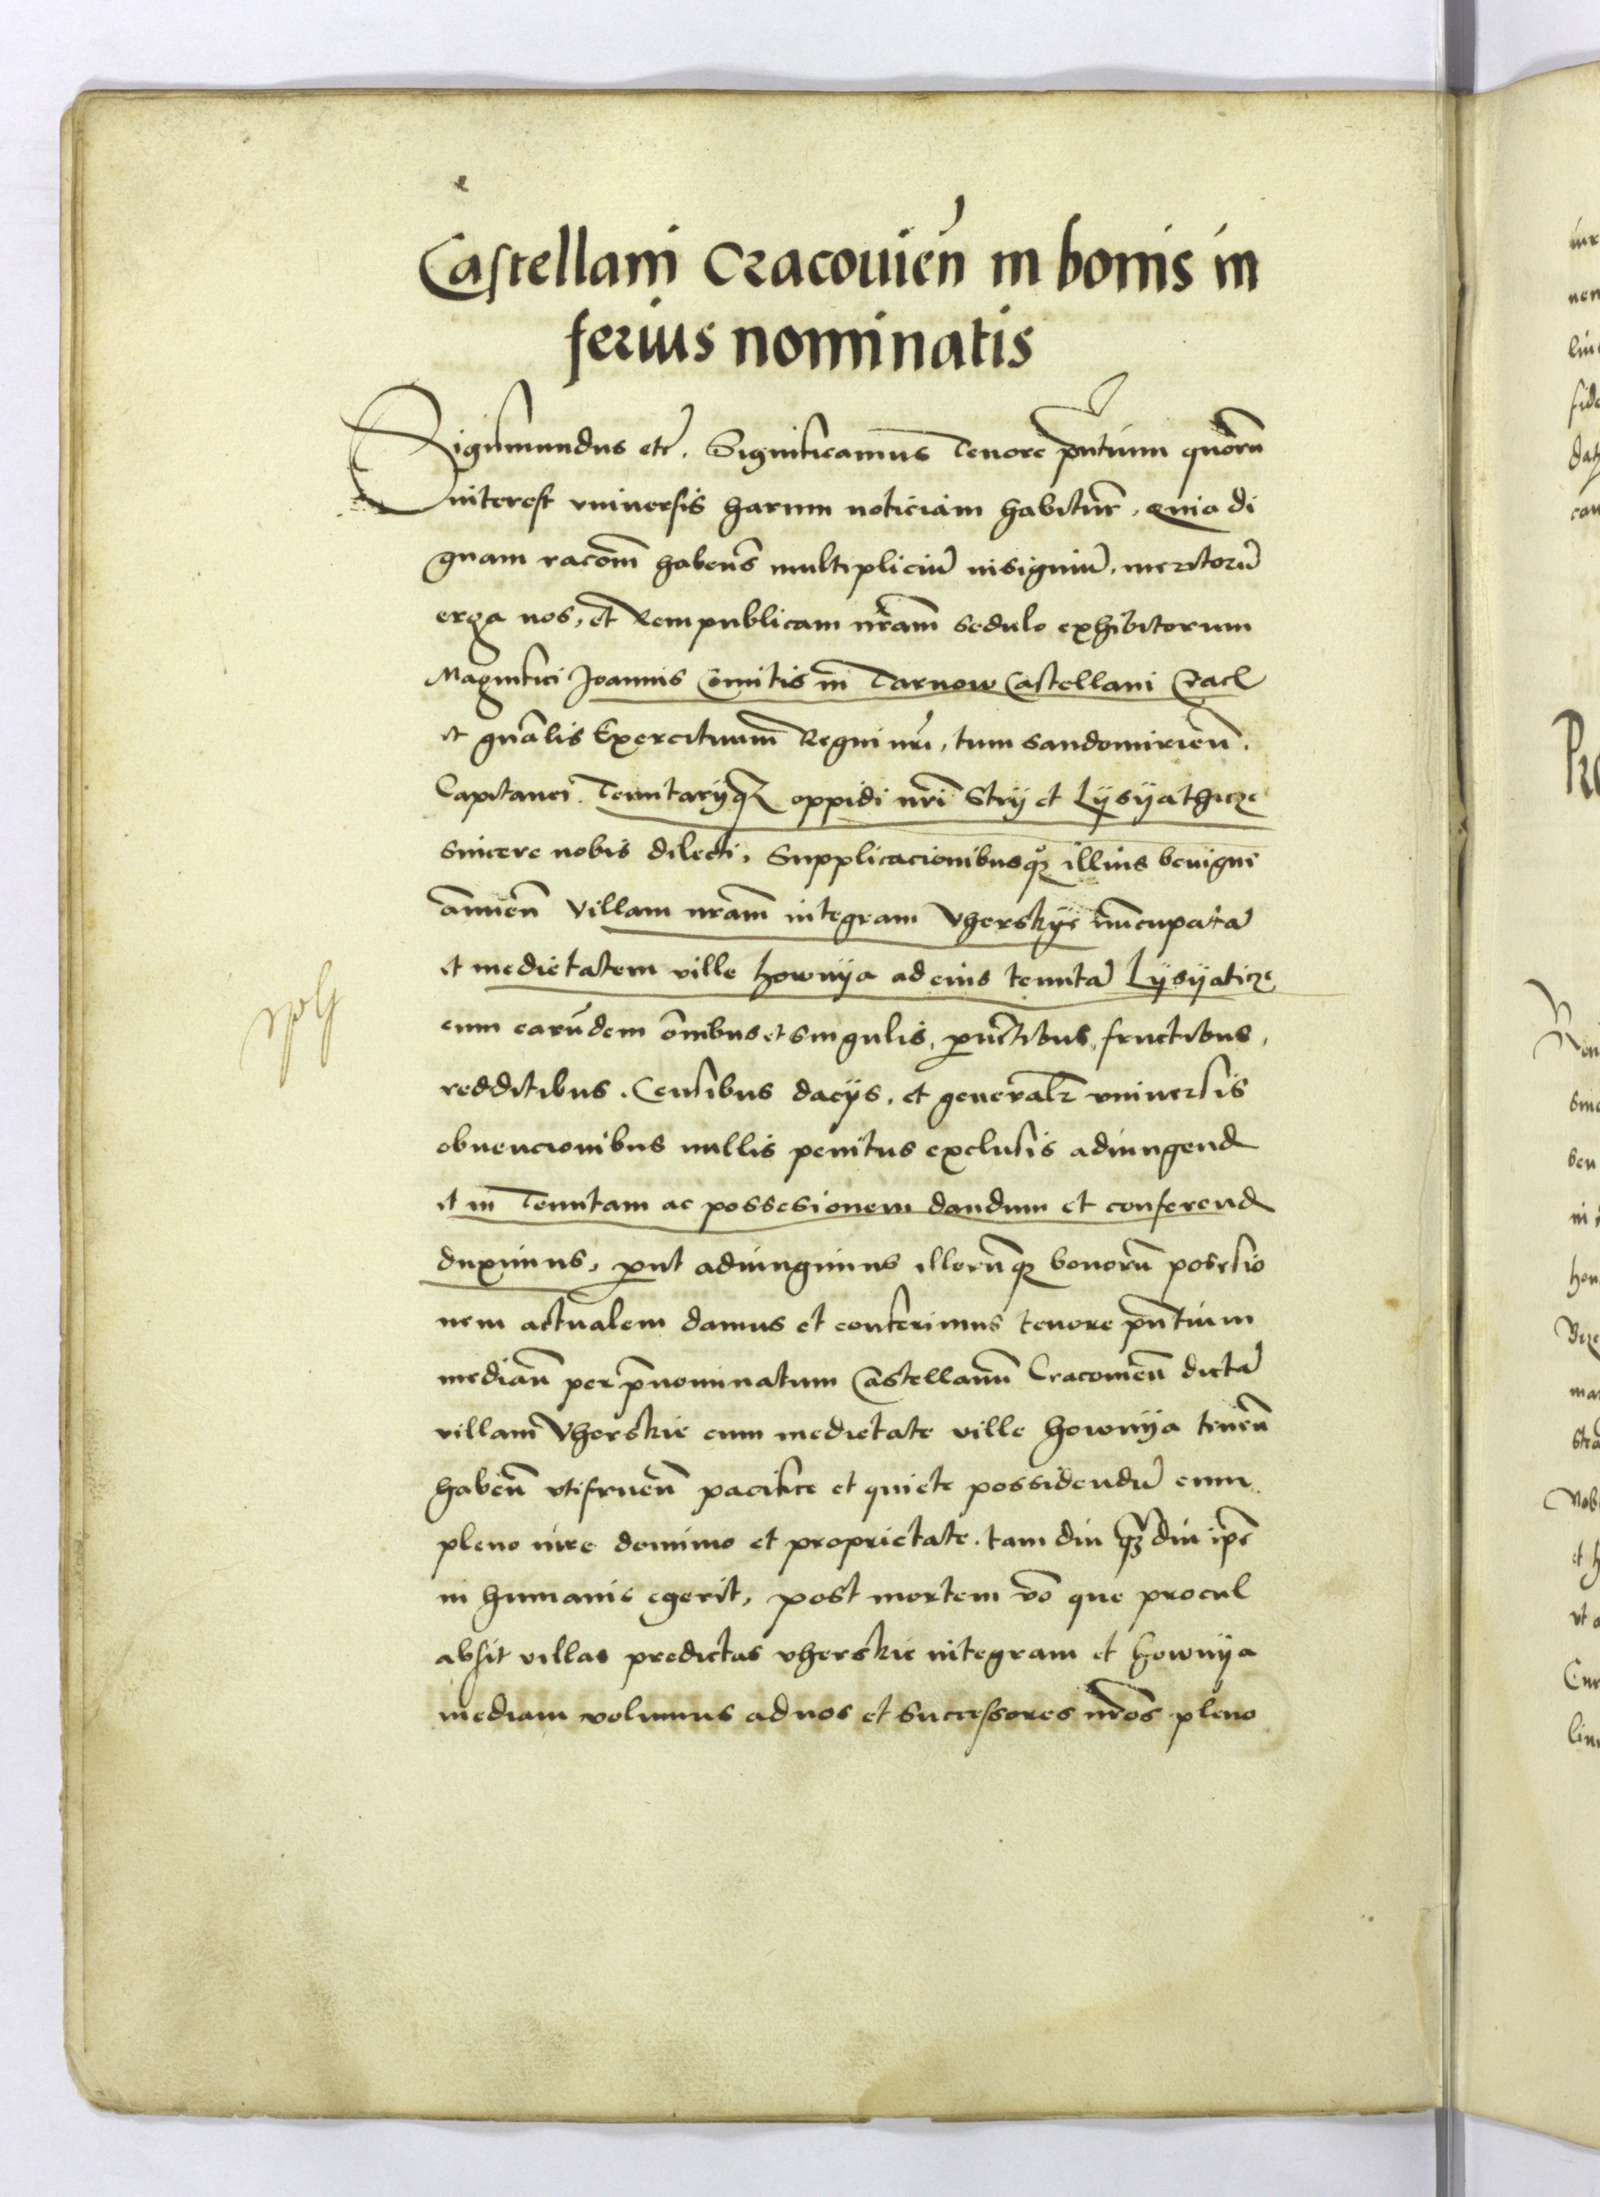 Castellani Cracouien̄ in bonis in
ferius nominatis
Sigismundus etc̄. Significamus Tenore pn̄tium quorū
interest vniuersis harum noticiam habitur̄, quia di
gnam racōm habeñs multipliciū insigniū, meritorū
erga nos, et Rempublicam nr̄am sedulo exhibitorum
Magnifici Joannis Comitis in Tarnow Castellani Crac̄
et gn̄alis Exercituum Regni nr̄i, tum sandomirien̄.
Capitanei. Tenutaryq3 oppidi nr̄i Stry et Lysyathicze
sincere nobis dilecti, Supplicacionibusq3 illius benigne
annuen̄ villam nr̄am integram Vherskye nuncupatā
et medietatem ville hownya ad eius tenutā Lysyaticze
cum earundem om̄ibus et singulis, prouen̄tibus, fructibus,
redditibus. Censibus dacys, et generalr̄ vniuersis
obuencionibus nullis penitus exclusis adiungend̄
et in Tenutam ac possesionem dandum et conferend̄
duximus, prout adiungimus illorumq3 bonorū possesio
nem actualem damus et conferimus tenore pn̄tium
median̄ per p̄nominatum Castellanū Cracouien̄ dictā
villam Vherskie cum medietate ville hownya tenen̄
haben̄ vtifruen̄ pacifice et quiete possidendū cum
pleno iure dominio et proprietate. tam diu q̄3 diu ip̄e
in humanis egerit, post mortem vō que procul
absit villas predictas vherskie integram et hownya
mediam volumus ad nos et successores nr̄os pleno